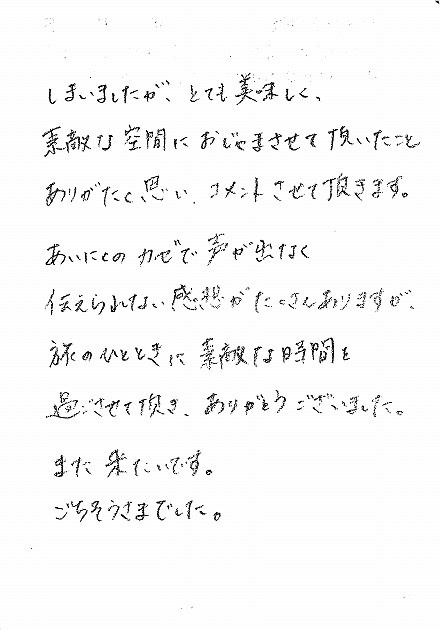 しまいましたが、とても美味しく、
素敵な空間におじゃまさせて頂いたこと
ありがたく思い、コメントさせて頂きます。
あいにくのカゼで声が出なく
伝えられない感想がたくさんありますが、
旅のひとときに素敵な時間を
過ごさせて頂き、ありがとうございました。
また来たいです。
ごちそうさまでした。